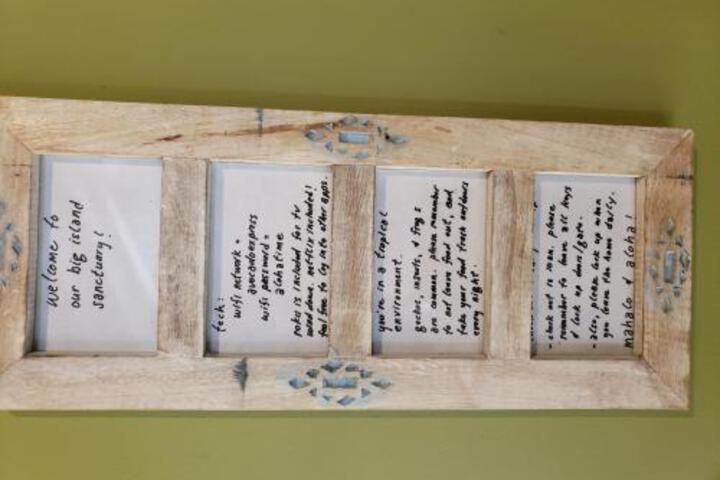 Welcome to
our big island
sanctuary!
tech:
wifi network =
avocadoexpress
wifi password =
alohatime
roku is included for tv
netflix included!
feel free to log into other apps.
you're in a tropical
environment.
geckos, insects, & frogs
are common. please remember
to not leave food out, and
take your food trash outdoors
every night.
- check out is 11am. please
remember to leave all keys
& lock up doors/gate.
- also, please lock up when
you leave the home daily.
mahalo & aloha!